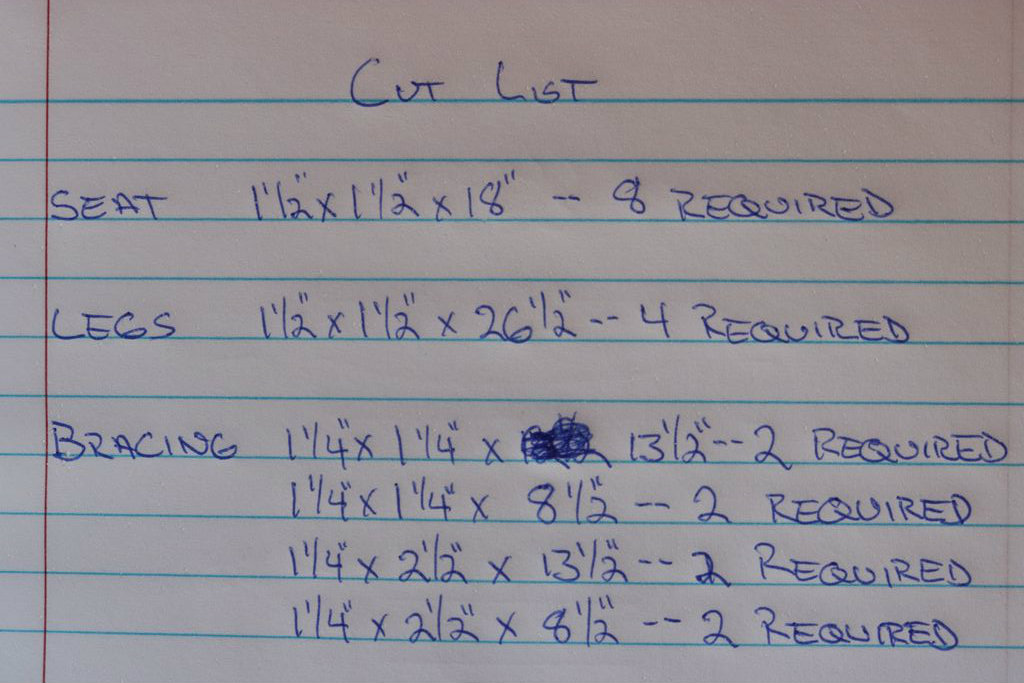 CUT LIST
SEAT 1 1/2" x 1 1/2" x 18" -- 8 REQUIRED
LEGS 1 1/2" x 1 1/2" x 26 1/2" -- 4 REQUIRED
BRACING 1 1/4" x 1 1/4" x 13 1/2" -- 2 REQUIRED
1 1/4" x 1 1/4" x 8 1/2" -- 2 REQUIRED
1 1/4" x 2 1/2" x 13 1/2" -- 2 REQUIRED
1 1/4" x 2 1/2" x 8 1/2" -- 2 REQUIRED